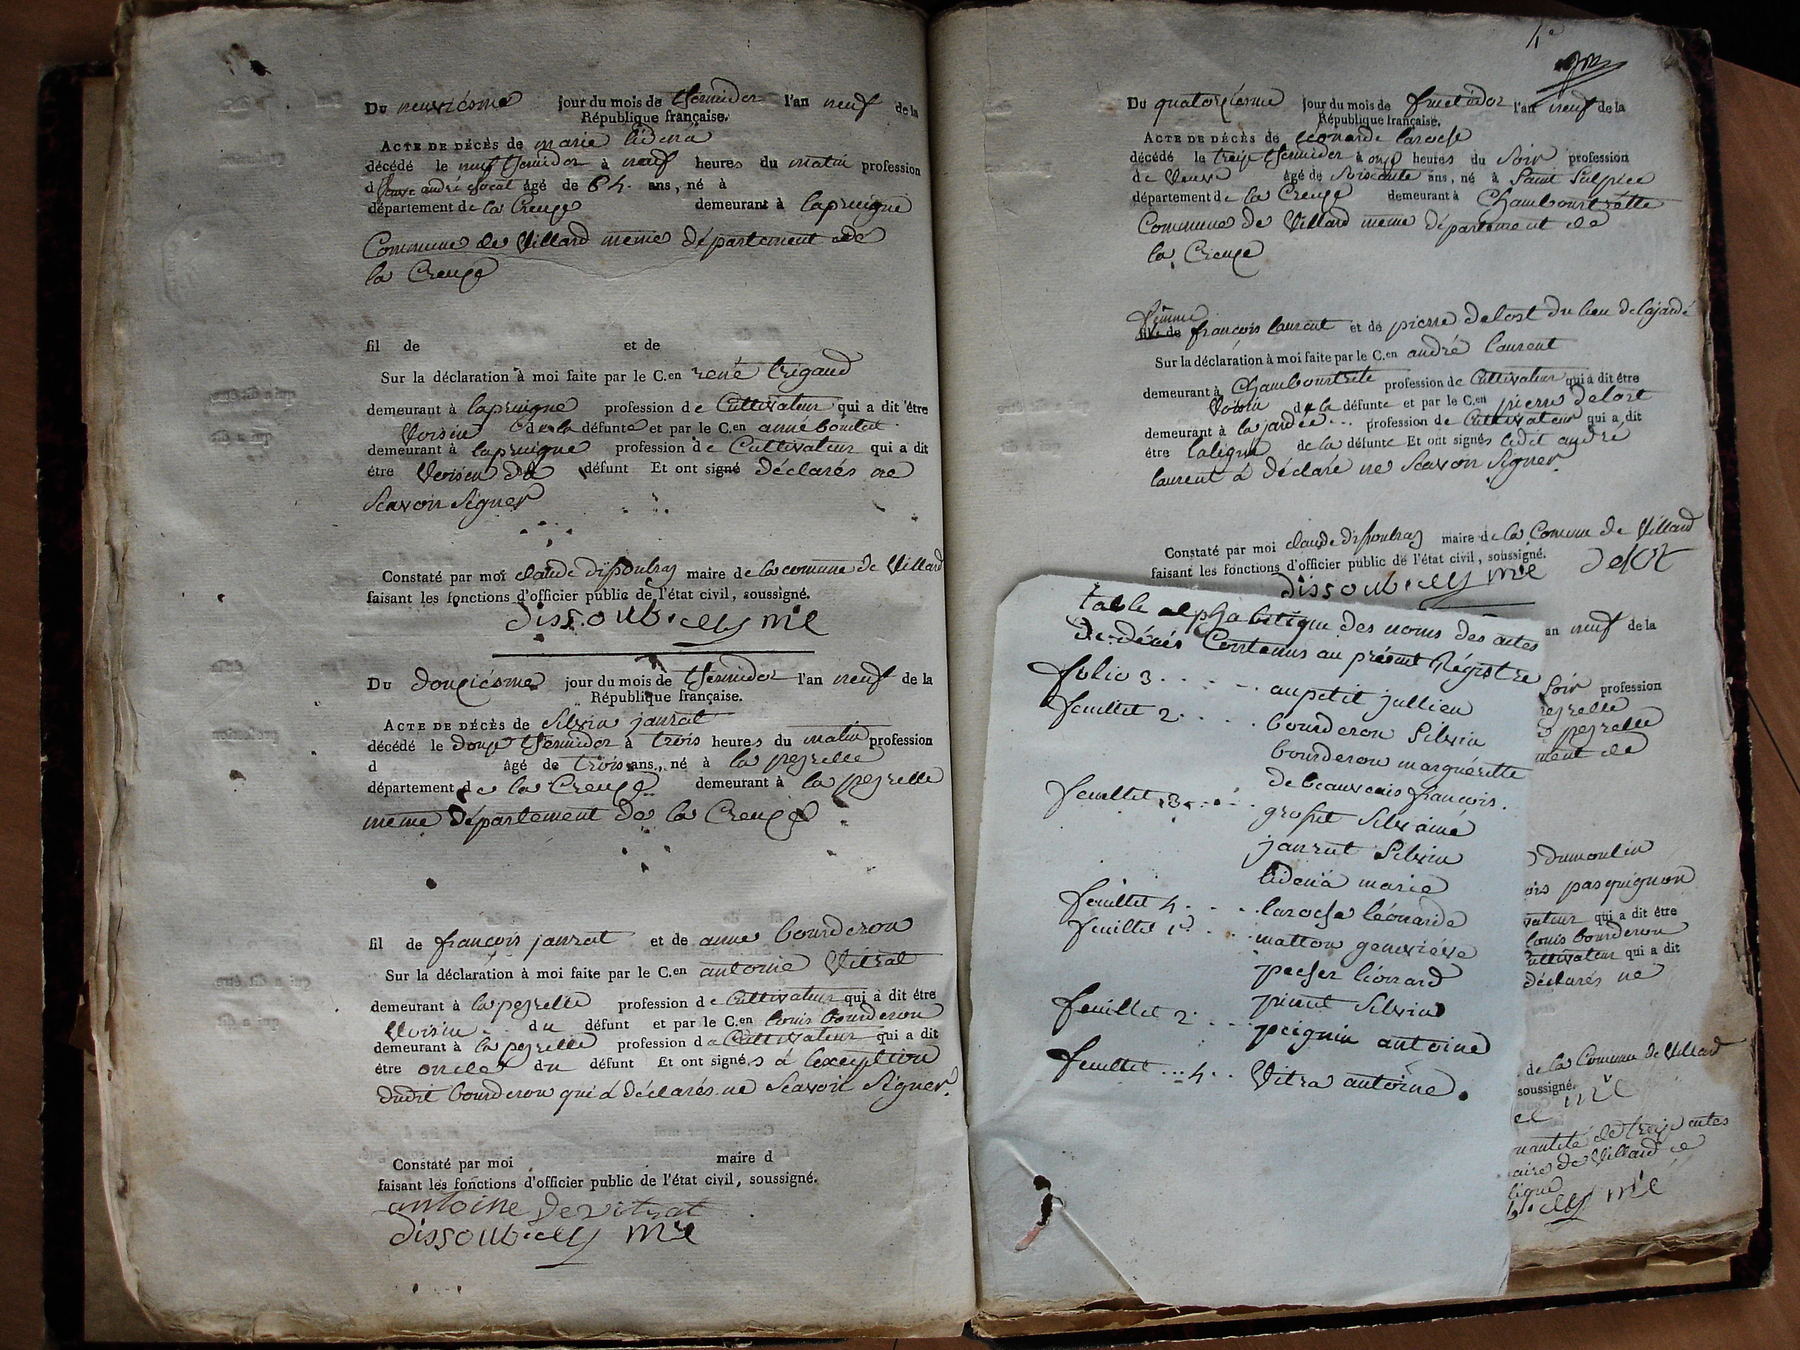 Du neuvième jour du mois de thermidor l'an neuf de la
République française.
ACTE DE DÉCÈS de marie
décédé le neuf thermidor à neuf heures du matin profession
d veuve andré âgé de 64. ans, né à
département de la Creuze demeurant à laprugne
Commune de Villard meme département de
la Creuze
fil de et de
Sur la déclaration à moi faite par le C.en rené trigaud
demeurant à laprugne profession de Cultivateur qui a dit être
Voisin de la défunte et par le C.en anné boutet
demeurant à laprugne profession de Cultivateur qui a dit
être Voisin de défunt Et ont signé déclarés ne
Scavoir Signer
Constaté par moi claude maire de la comune de Villard
faisant les fonctions d'officier public de l'état civil, soussigné.
Du douzième jour du mois de thermidor l'an neuf de la
République française.
ACTE DE DÉCÈS de Silvin janrat
décédé le douze thermidor à trois heures du matin profession
d âgé de trois ans, né à la peyrelle
département de la Creuze demeurant à la peyrelle
meme département de la Creuze
fil de françois janrat et de anne bourderon
Sur la déclaration à moi faite par le C.en antoine Vitrat
demeurant à la peyrelle profession de Cultivateur qui a dit être
Voisin du défunt et par le C.en louis bourderon
demeurant à la peyrelle profession de Cultivateur qui a dit
être oncle du défunt Et ont signés à lexception
dudit bourderon qui á déclarés ne Scavoir Signer.
Constaté par moi maire d
faisant les fonctions d'officier public de l'état civil, soussigné.
antoine de vitrat
4e
Du quatorzième jour du mois de fructidor l'an neuf de la
République française.
ACTE DE DÉCÈS de léonarde laroche
décédé le treize thermidor à onze heures du Soir profession
de Veuve âgé de Soixante ans, né à Saint Sulpice
département de la Creuze demeurant à
Commune de Villard meme département de
la Creuze
femme
fille de françois laurent et de pierre delost du lieu de lajardé
Sur la déclaration à moi faite par le C.en andré laurent
demeurant à profession de Cultivateur qui a dit être
Voisin de la défunte et par le C.en pierre delost
demeurant à la jardée profession de Cultivateur qui a dit
être de la défunte Et ont signés ledit andré
laurent á déclaré ne Scavoir Signer
Constaté par moi claude maire de la Comune de Villard
faisant les fonctions de officier public de l'état civil, soussigné.
delost
table alphabétique des noms des actes
de décés Contenus au présent Régistre
folio 3 aupetit jullien
feuillet 2 bourderon Silvin
bourderon marguéritte
debeauvais françois.
feuillet 3 Silvaine
janrat Silvin
marie
feuillet 4 laroche léonarde
feuillet 1er matton geneviéve
pecher léonard
Silvin
feuillet 2 peignin antoine
feuillet 4 Vitra antoine.
an neuf de la
Soir profession
peyrelle
peyrelle
ment de
dumoulin
ois pasquignon
vateur qui a dit être
louis bourderon
ultivateur qui a dit
déclarés ne
de la Comune de Villard
soussigné.
uantité de treize actes
aire de Villard ce